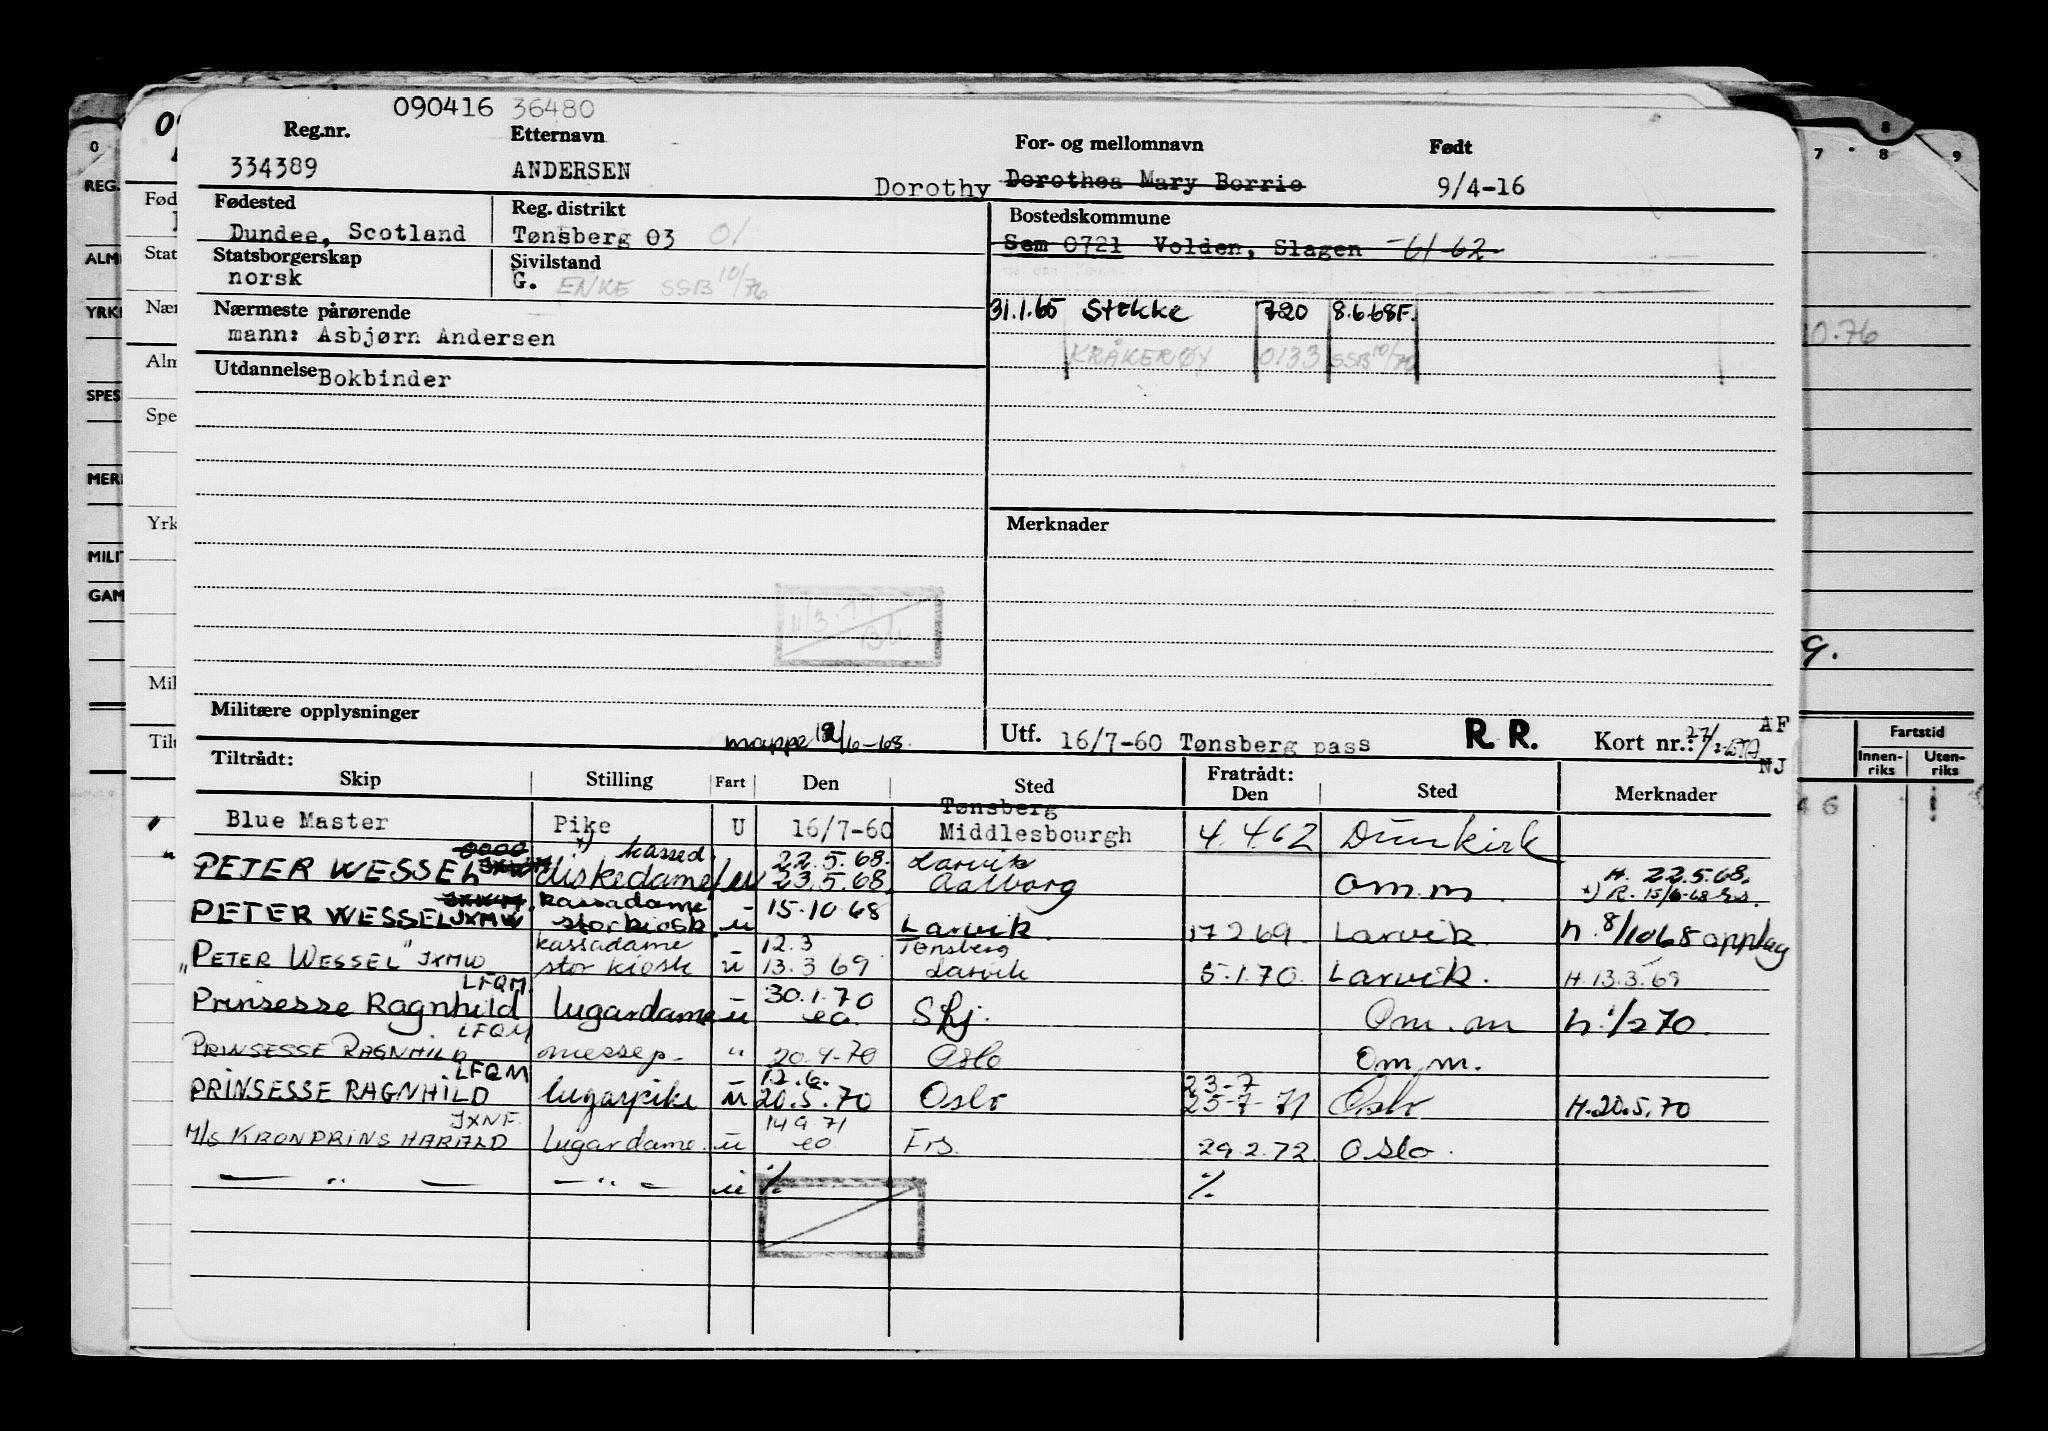 090416 36480
Reg.nr. Etternavn For- og mellomnavn Født
334389 ANDERSEN Dorothy Dorothea Mary Borrie 9/4-16
Fødested Reg. distrikt Bostedskommune
Dundee, Scotland Tønsberg 03 01 Sem 0721 Volden, Slagen -61-62
Statsborgerskap Sivilstand
norsk G. ENKE SSB 10/76
Nærmeste pårørende 31.1.65 Stokke 720 8.6.68F.
mann: Asbjørn Andersen
KRÅKERØY 0133 SSB 10/76
Utdannelse Bokbinder
Merknader
11/3.77
Militære opplysninger
mappe 12/6-68. Utf. 16/7-60 Tønsberg pass R.R. Kort nr.: AF
NJ
Tiltrådt: Fratrådt:
Skip Stilling Fart Den Sted Den Sted Merknader
Blue Master Pike U 16/7-60 Tønsberg Middlesbourgh 4.4.62 Dunkirk
PETER WESSEL 0000 diskedame x) kassed 22.5.68. 23.5.68. Larvik Aalborg om.m. H. 22.5.68.
x) R. 15/6-68
PETER WESSEL JXMW kassadame storkiosk u 15.10.68 Larvik 17.2.69. Larvik h. 8/10 68 opplag
"PETER WESSEL" JXMW kassadame stor kiosk u 12.3 13.3 69 Tønsberg Larvik 5.1.70. Larvik. H. 13.3.69
Prinsesse Ragnhild LFQM. lugardame u 30.1.70 eo. Skj. Om.m h. 1/2 70.
PRINSESSE RAGNHILD LFQM messep. " 20.4-70 Oslo Om.m.
PRINSESSE RAGNHILD LFQM lugarpike u 12.6. 20.5.70 Oslo 23-7 25-7-71 Oslo H.20.5.70
M/S KRONPRINS HARALD JXNF. lugardame. u 14.9.71 eo. Frs. 29.2.72. Oslo.
— " — — " — u % %
0 7 8 8 9
REG.
ALM
YRK
SPES
MERI
MILIT
GAM
Fød
Stat
Nær
Alm
Spe
Yrk
Mil
Tilt
0.76
9.
Fartstid
Innen-riks Uten-riks
46